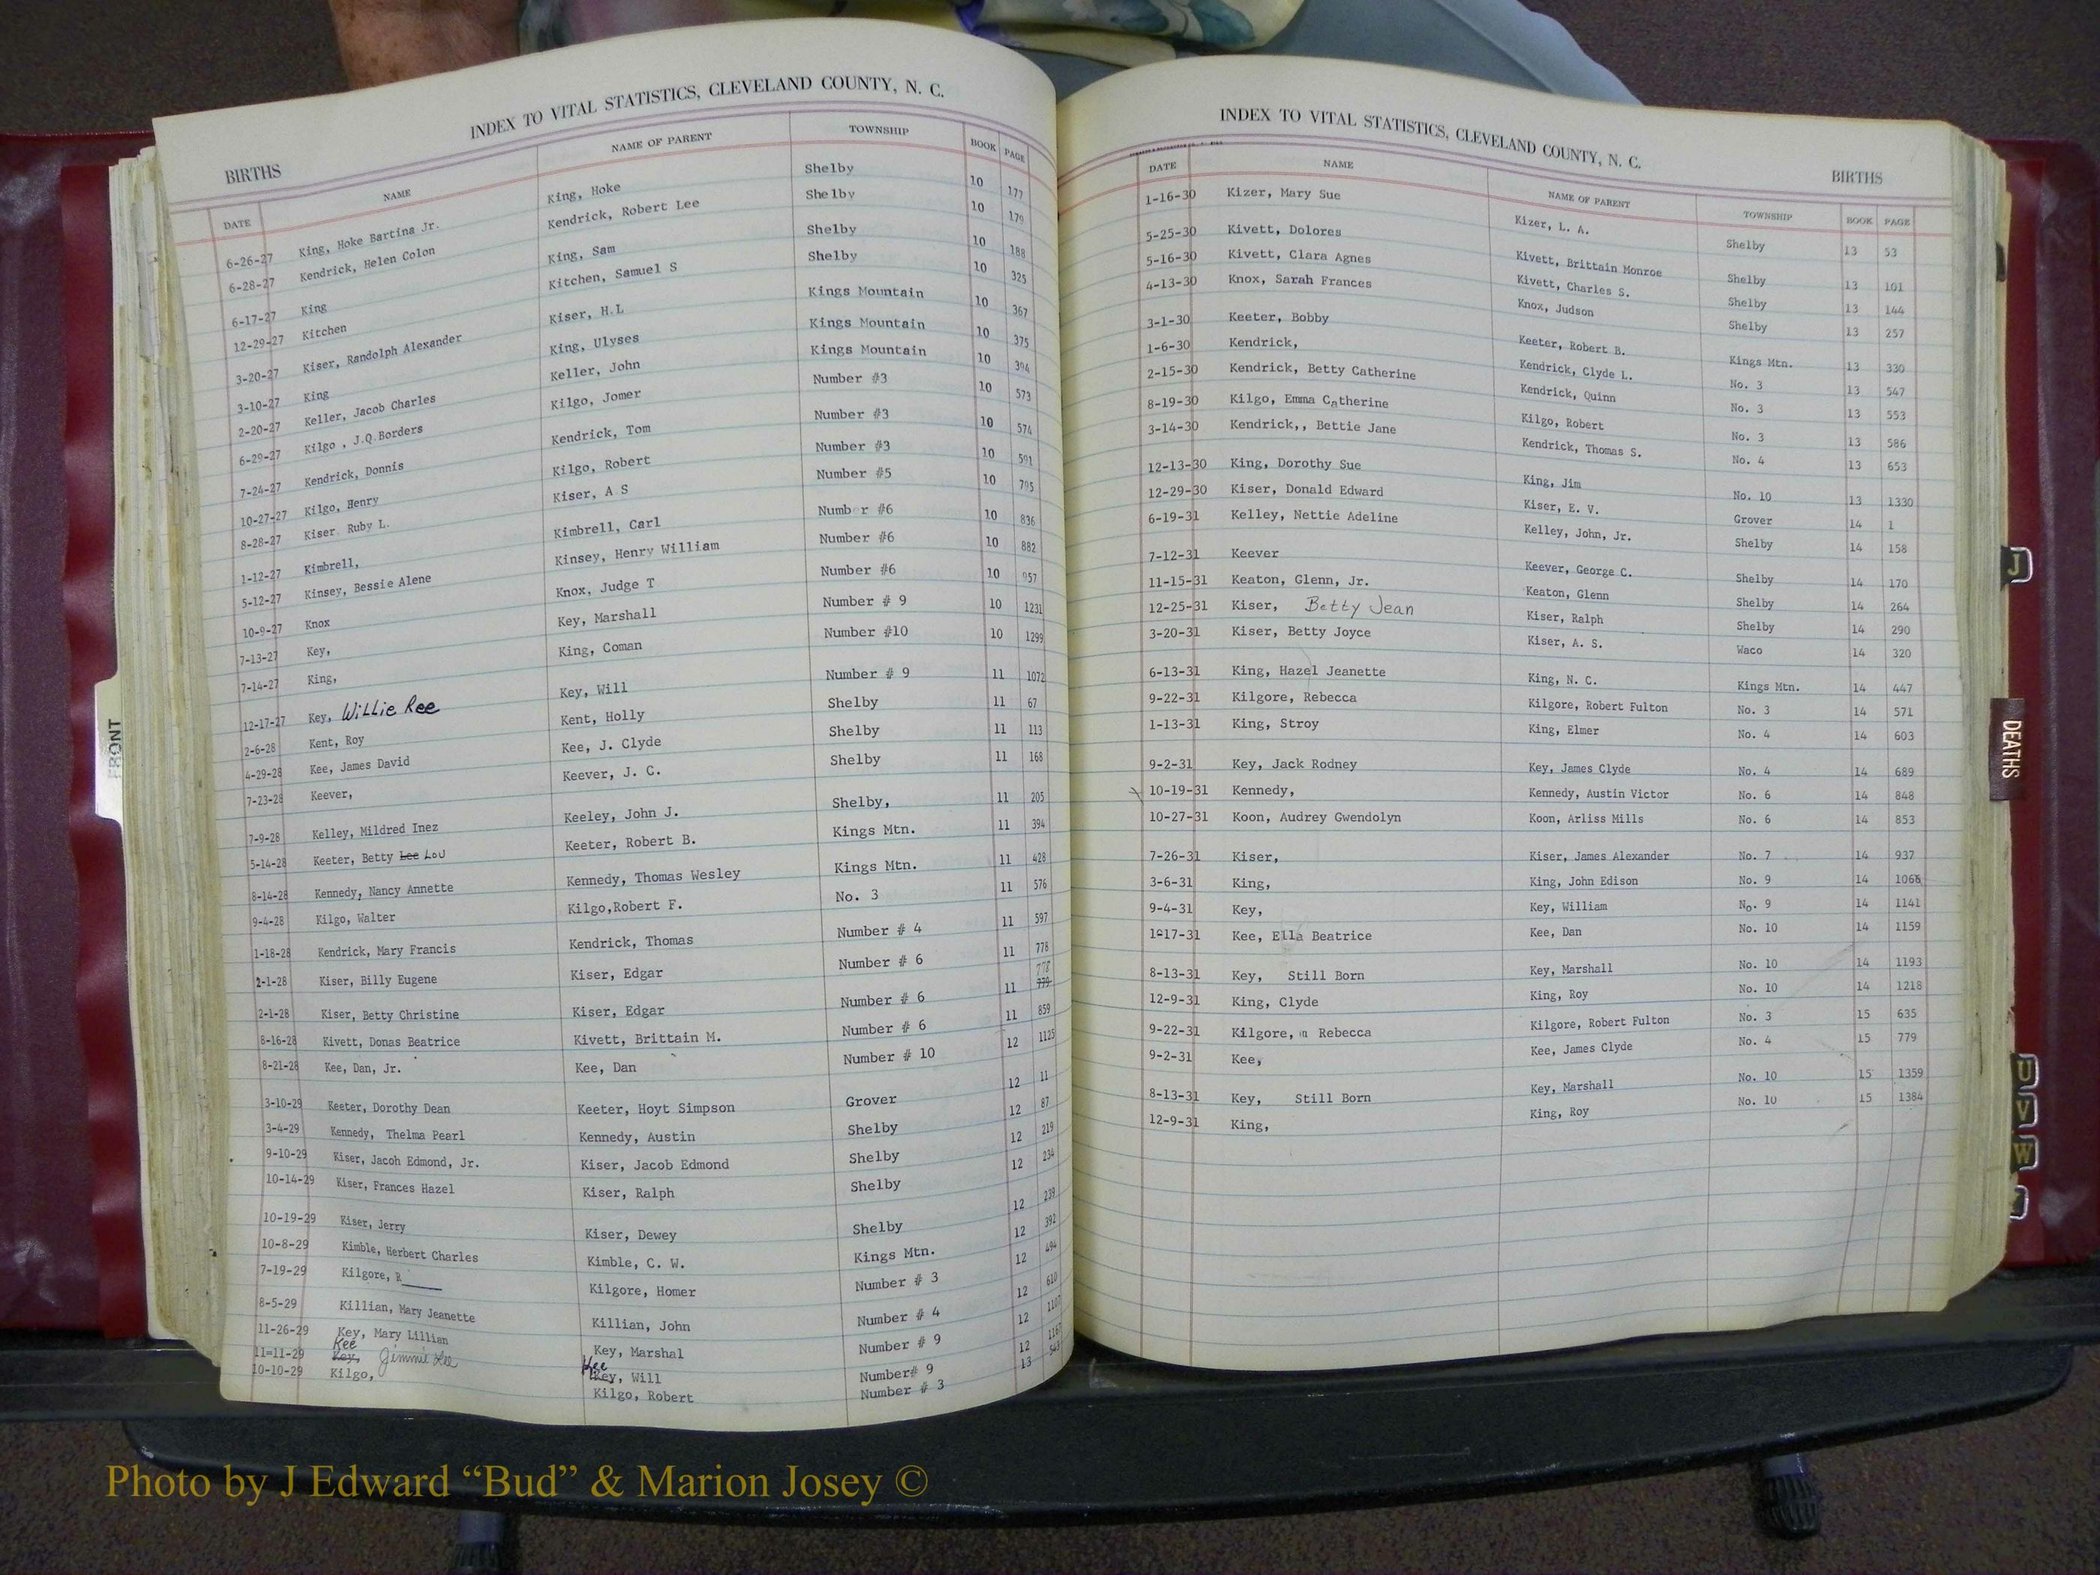 INDEX TO VITAL STATISTICS, CLEVELAND COUNTY, N. C.
BIRTHS
DATE NAME NAME OF PARENT TOWNSHIP BOOK PAGE
6-26-27 King, Hoke Bartina Jr. King, Hoke Shelby 10 177
6-28-27 Kendrick, Helen Colon Kendrick, Robert Lee Shelby 10 179
6-17-27 King King, Sam Shelby 10 188
12-29-27 Kitchen Kitchen, Samuel S Shelby 10 325
3-20-27 Kiser, Randolph Alexander Kiser, H.L Kings Mountain 10 367
3-10-27 King King, Ulyses Kings Mountain 10 375
2-20-27 Keller, Jacob Charles Keller, John Kings Mountain 10 394
6-29-27 Kilgo , J.Q.Borders Kilgo, Jomer Number #3 10 573
7-24-27 Kendrick, Donnis Kendrick, Tom Number #3 10 574
10-27-27 Kilgo, Henry Kilgo, Robert Number #3 10 591
8-28-27 Kiser Ruby L. Kiser, A S Number #5 10 795
1-12-27 Kimbrell, Kimbrell, Carl Number #6 10 836
5-12-27 Kinsey, Bessie Alene Kinsey, Henry William Number #6 10 882
10-9-27 Knox Knox, Judge T Number #6 10 957
7-13-27 Key, Key, Marshall Number # 9 10 1231
7-14-27 King, King, Coman Number #10 10 1299
12-17-27 Key, Willie Ree Key, Will Number # 9 11 1072
2-6-28 Kent, Roy Kent, Holly Shelby 11 67
4-29-28 Kee, James David Kee, J. Clyde Shelby 11 113
7-23-28 Keever, Keever, J. C. Shelby 11 168
7-9-28 Kelley, Mildred Inez Keeley, John J. Shelby, 11 205
5-14-28 Keeter, Betty Lee Lou Keeter, Robert B. Kings Mtn. 11 394
8-14-28 Kennedy, Nancy Annette Kennedy, Thomas Wesley Kings Mtn. 11 428
9-4-28 Kilgo, Walter Kilgo,Robert F. No. 3 11 576
1-18-28 Kendrick, Mary Francis Kendrick, Thomas Number # 4 11 597
2-1-28 Kiser, Billy Eugene Kiser, Edgar Number # 6 11 778
2-1-28 Kiser, Betty Christine Kiser, Edgar Number # 6 11 778 779
8-16-28 Kivett, Donas Beatrice Kivett, Brittain M. Number # 6 11 859
8-21-28 Kee, Dan, Jr. Kee, Dan Number # 10 12 1125
3-10-29 Keeter, Dorothy Dean Keeter, Hoyt Simpson Grover 12 11
3-4-29 Kennedy, Thelma Pearl Kennedy, Austin Shelby 12 87
9-10-29 Kiser, Jacob Edmond, Jr. Kiser, Jacob Edmond Shelby 12 219
10-14-29 Kiser, Frances Hazel Kiser, Ralph Shelby 12 234
10-19-29 Kiser, Jerry Kiser, Dewey Shelby 12 239
10-8-29 Kimble, Herbert Charles Kimble, C. W. Kings Mtn. 12 392
7-19-29 Kilgore, R____ Kilgore, Homer Number # 3 12 494
8-5-29 Killian, Mary Jeanette Killian, John Number # 4 12 610
11-26-29 Key, Mary Lillian Key, Marshal Number # 9 12 1107
11=11-29 Key, Kee Jimmie Lee Key, Kee Will Number# 9 12 1167
10-10-29 Kilgo, Kilgo, Robert Number # 3 13 543
INDEX TO VITAL STATISTICS, CLEVELAND COUNTY, N. C.
BIRTHS
DATE NAME NAME OF PARENT TOWNSHIP BOOK PAGE
1-16-30 Kizer, Mary Sue Kizer, L. A. Shelby 13 53
5-25-30 Kivett, Dolores Kivett, Brittain Monroe Shelby 13 101
5-16-30 Kivett, Clara Agnes Kivett, Charles S. Shelby 13 144
4-13-30 Knox, Sarah Frances Knox, Judson Shelby 13 257
3-1-30 Keeter, Bobby Keeter, Robert B. Kings Mtn. 13 330
1-6-30 Kendrick, Kendrick, Clyde L. No. 3 13 547
2-15-30 Kendrick, Betty Catherine Kendrick, Quinn No. 3 13 553
8-19-30 Kilgo, Emma Catherine Kilgo, Robert No. 3 13 586
3-14-30 Kendrick,, Bettie Jane Kendrick, Thomas S. No. 4 13 653
12-13-30 King, Dorothy Sue King, Jim No. 10 13 1330
12-29-30 Kiser, Donald Edward Kiser, E. V. Grover 14 1
6-19-31 Kelley, Nettie Adeline Kelley, John, Jr. Shelby 14 158
7-12-31 Keever Keever, George C. Shelby 14 170
11-15-31 Keaton, Glenn, Jr. Keaton, Glenn Shelby 14 264
12-25-31 Kiser, Betty Jean Kiser, Ralph Shelby 14 290
3-20-31 Kiser, Betty Joyce Kiser, A. S. Waco 14 320
6-13-31 King, Hazel Jeanette King, N. C. Kings Mtn. 14 447
9-22-31 Kilgore, Rebecca Kilgore, Robert Fulton No. 3 14 571
1-13-31 King, Stroy King, Elmer No. 4 14 603
9-2-31 Key, Jack Rodney Key, James Clyde No. 4 14 689
10-19-31 Kennedy, Kennedy, Austin Victor No. 6 14 848
10-27-31 Koon, Audrey Gwendolyn Koon, Arliss Mills No. 6 14 853
7-26-31 Kiser, Kiser, James Alexander No. 7 14 937
3-6-31 King, King, John Edison No. 9 14 1066
9-4-31 Key, Key, William No. 9 14 1141
1-17-31 Kee, Ella Beatrice Kee, Dan No. 10 14 1159
8-13-31 Key, Still Born Key, Marshall No. 10 14 1193
12-9-31 King, Clyde King, Roy No. 10 14 1218
9-22-31 Kilgore, Rebecca Kilgore, Robert Fulton No. 3 15 635
9-2-31 Kee, Kee, James Clyde No. 4 15 779
8-13-31 Key, Still Born Key, Marshall No. 10 15 1359
12-9-31 King, King, Roy No. 10 15 1384
FRONT
J
DEATHS
U
V
W
Photo by J Edward “Bud” & Marion Josey ©